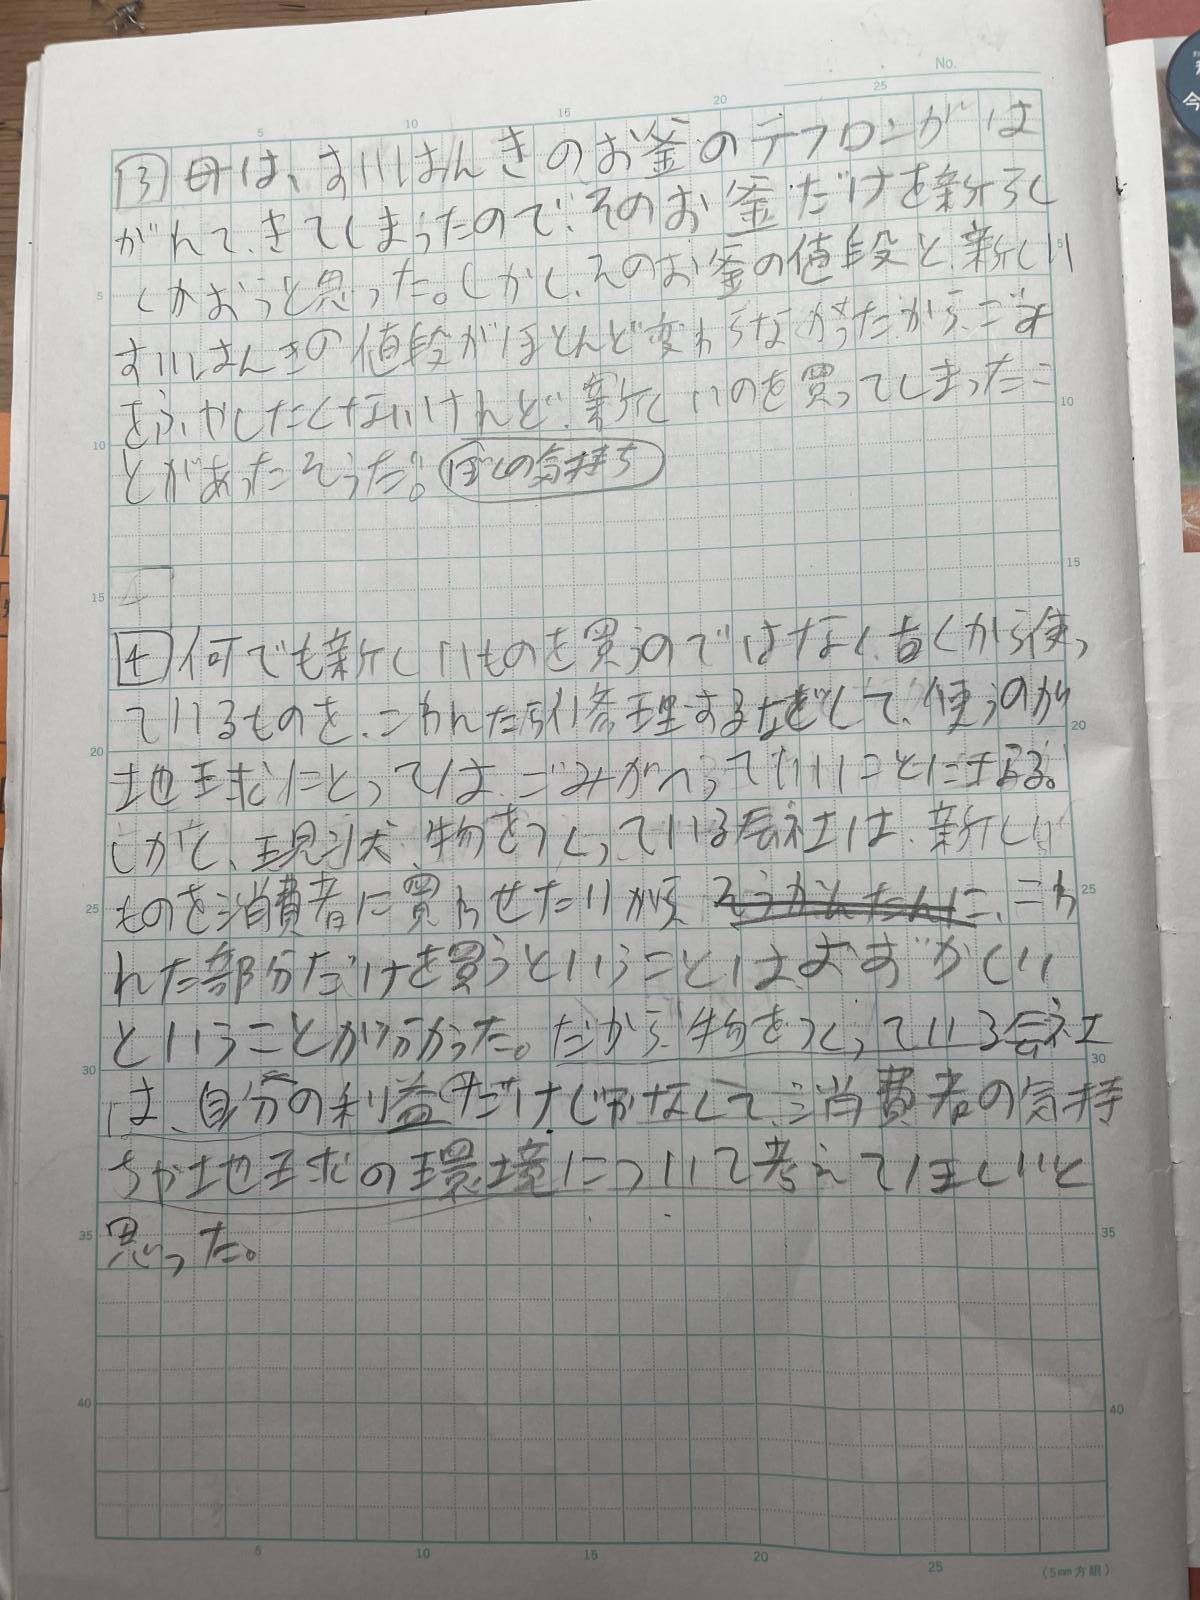 No.
5 10 15 20 25
③母は、すいはんきのお釜のテフロンがは
がれて、きてしまったので、そのお釜だけを新らし
くかおうと思った。しかし、そのお釜の値段と、新しい
すいはんきの値段がほとんど変わらなかったから、ごみ
をふやしたくないけれど、新しいのを買ってしまったこ
とがあったそうだ。ぼくの気持ち
4
④何でも新しいものを買うのではなく、古くから使っ
ているものを、こわれたら修理するなどして、使うのが
地球にとっては、ごみがへっていいことになる。
しかし、現状、物をつくっている会社は、新しい
ものを消費者に買わせたいから、こわ
れた部分だけを買うということはむずかしい
ということが分かった。だから、物をつくっている会社
は、自分の利益だけじゃなくて、消費者の気持
ちや地球の環境について考えてほしいと
思った。
5 10 15 20 25
(5mm方眼)